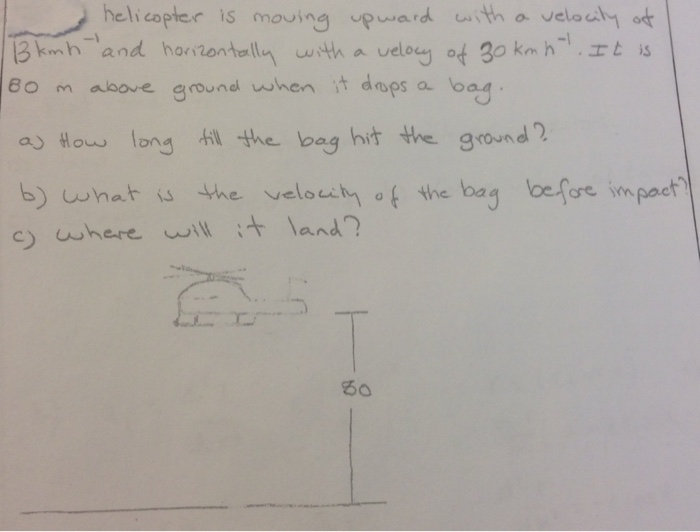 helicopter is moving upward with a velocity of
13 kmh⁻¹ and horizontally with a velocy of 30 km h⁻¹. It is
80 m above ground when it drops a bag.
a) How long till the bag hit the ground?
b) what is the velocity of the bag before impact?
c) where will it land?
80